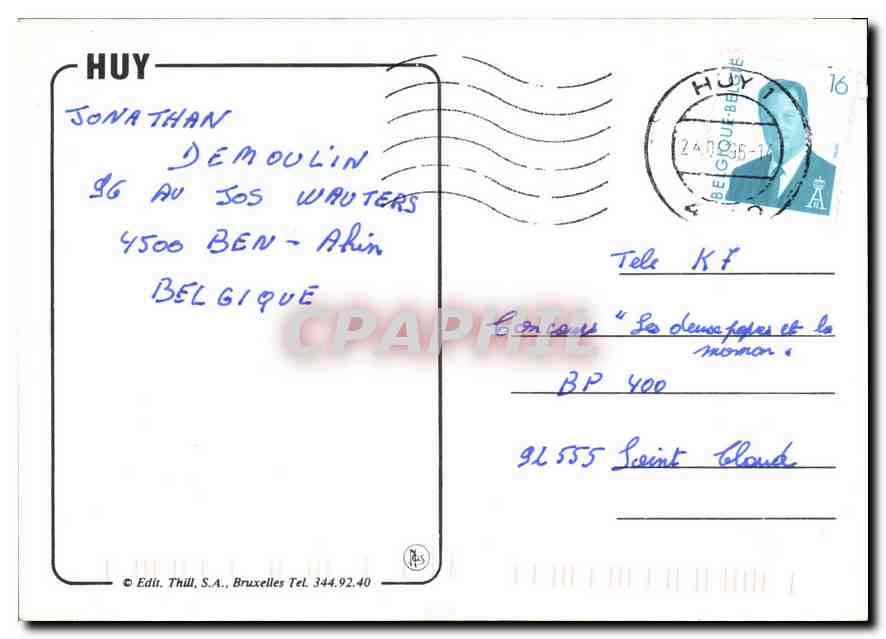 HUY
JONATHAN
DEMOULIN
96 AV JOS WAUTERS
4500 BEN - Ahin
BELGIQUE
© Edit. Thill, S.A., Bruxelles Tel. 344.92.40
HUY 1
BELGIQUE-BELGIE
16
Tele K7
Concours "Les deux papas et la
maman.
BP 400
92555 Saint Cloud
CPAPHIL